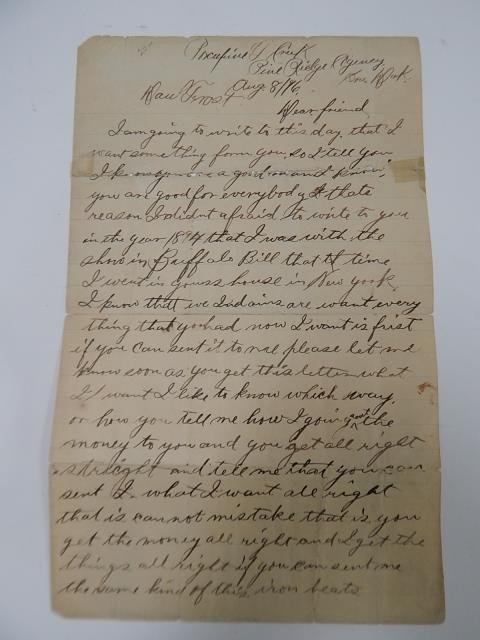 Porcupine Creek
Pine Ridge Agency
So. Dak.
Aug 8/96.
Dan Frost
Dear friend
I am going to write to this day that I
want something form you, so I tell you
I know you are a good man and I know
you are good for everybody & thats
reason I didnt afraid to write to you
in the year 1894 that I was with the
show in Buffalo Bill that time
I went in yours house in New york,
I know that we Indains are want every
thing that you had now I want is first
if you can sent it to me, please let me
know soon as you get this letter what
I want I like to know which way.
or how you tell me how I going sent the
money to you and you get all right
straight and tell me that you can
sent I what I want all right
that is cannot mistake that is you
get the money all right and I get the
things all right if you can sent me
the same kind of this iron beats